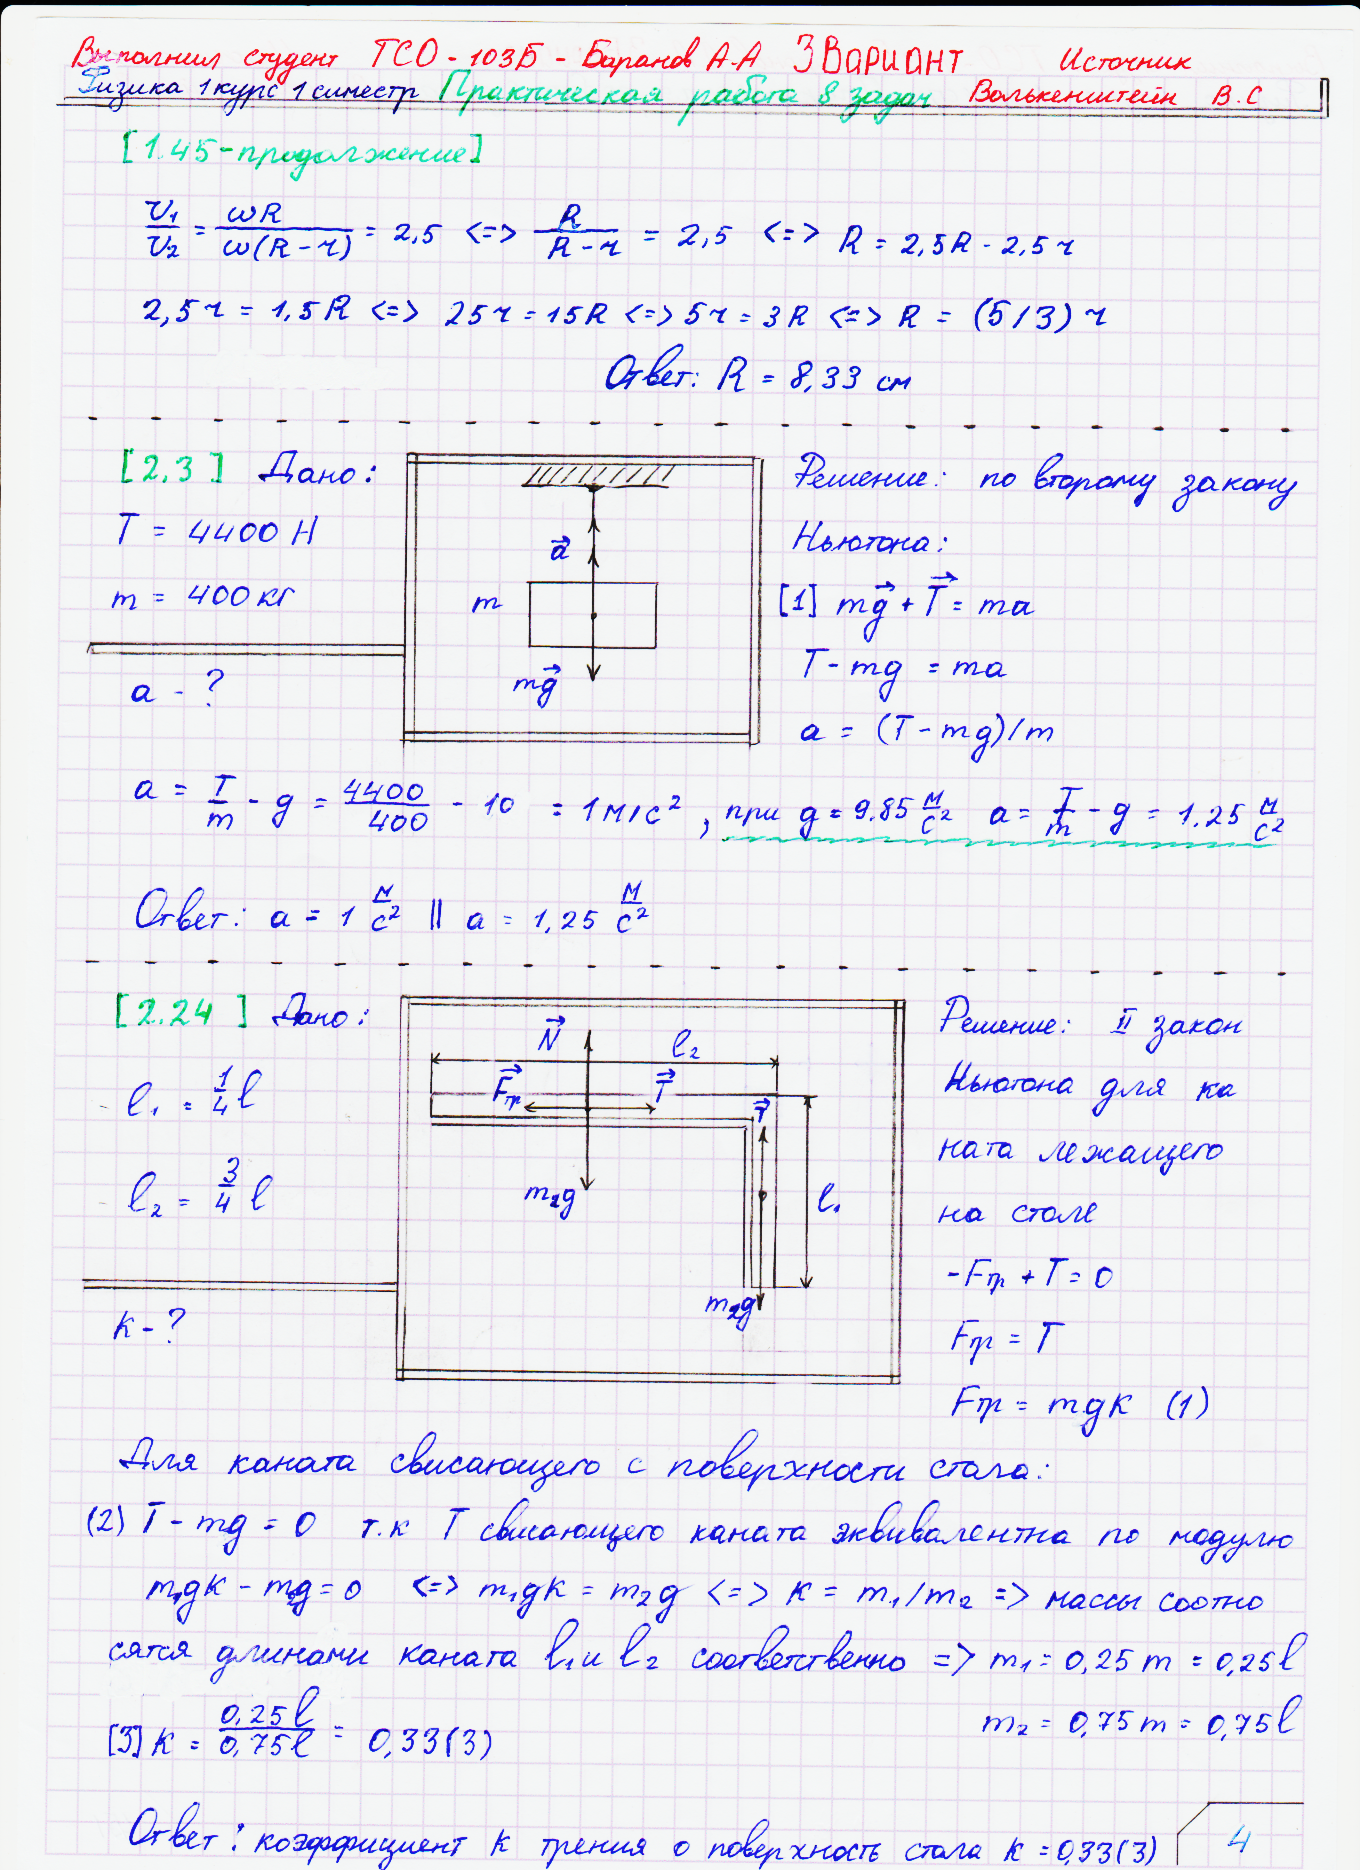 Выполнил студент ТСО-103Б - Баранов А.А 3 Вариант Источник
Физика 1 курс 1 симестр Практическая работа 8 задач Волькенштейн В.С
[1.45-продолжение]
v₁/v₂ = ωR/ω(R-r) = 2,5 <=> R/R-r = 2,5 <=> R = 2,5R - 2,5r
2,5r = 1,5R <=> 25r = 15R <=> 5r = 3R <=> R = (5/3)r
Ответ: R = 8,33 см
[2.3] Дано:
T = 4400 Н
m = 400 кг
a - ?
a⃗
m
mg⃗
Решение: по второму закону
Ньютона:
[1] mg⃗ + T⃗ = ma
T - mg = ma
a = (T - mg)/m
a = T/m - g = 4400/400 - 10 = 1 м/с², при g = 9.85 м/с² a = T/m - g = 1.25 м/с²
Ответ: a = 1 м/с² || a = 1,25 м/с²
[2.24] Дано:
l₁ = 1/4 l
l₂ = 3/4 l
k - ?
N⃗
l₂
F⃗тр
T⃗
T⃗
m₂g
l₁
m₂g
Решение: II закон
Ньютона для ка
ната лежащего
на столе
-Fтр + T = 0
Fтр = T
Fтр = mgk (1)
Для каната свисающего с поверхности стола:
(2) T - mg = 0 т.к T свисающего каната эквивалентна по модулю
m₁gk - m₂g = 0 <=> m₁gk = m₂g <=> k = m₁/m₂ => массы соотно
сятся длинами каната l₁ и l₂ соответственно => m₁ = 0,25m = 0,25l
m₂ = 0,75m = 0,75l
[3] k = 0,25l/0,75l = 0,33(3)
Ответ: коэффициент k трения о поверхность стола k = 0,33(3)
4